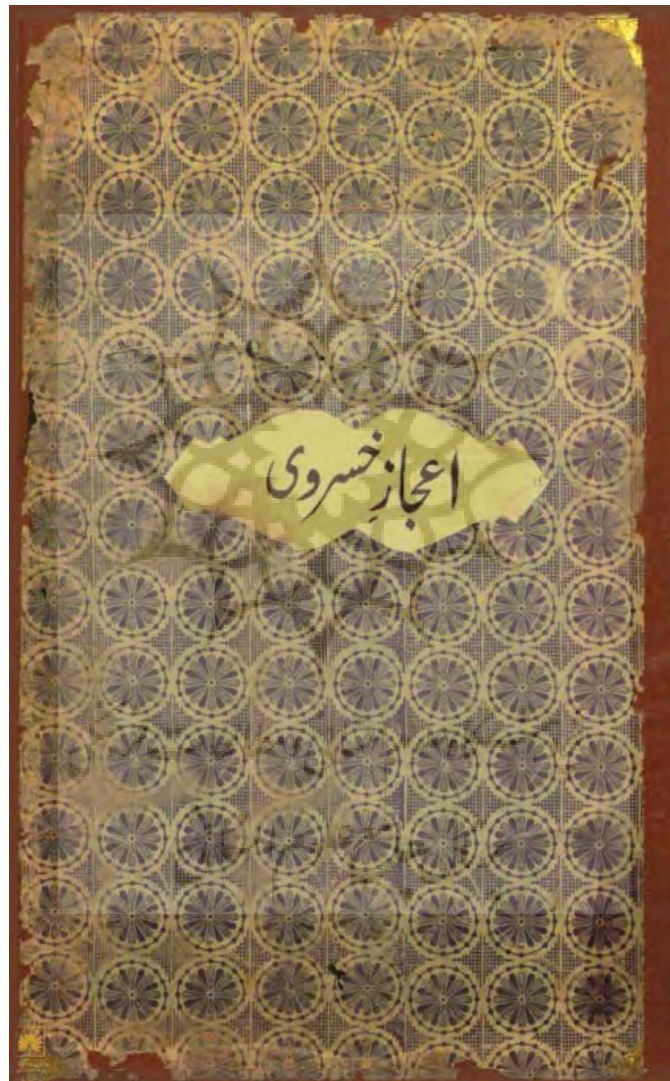 اعجازِ خسروی